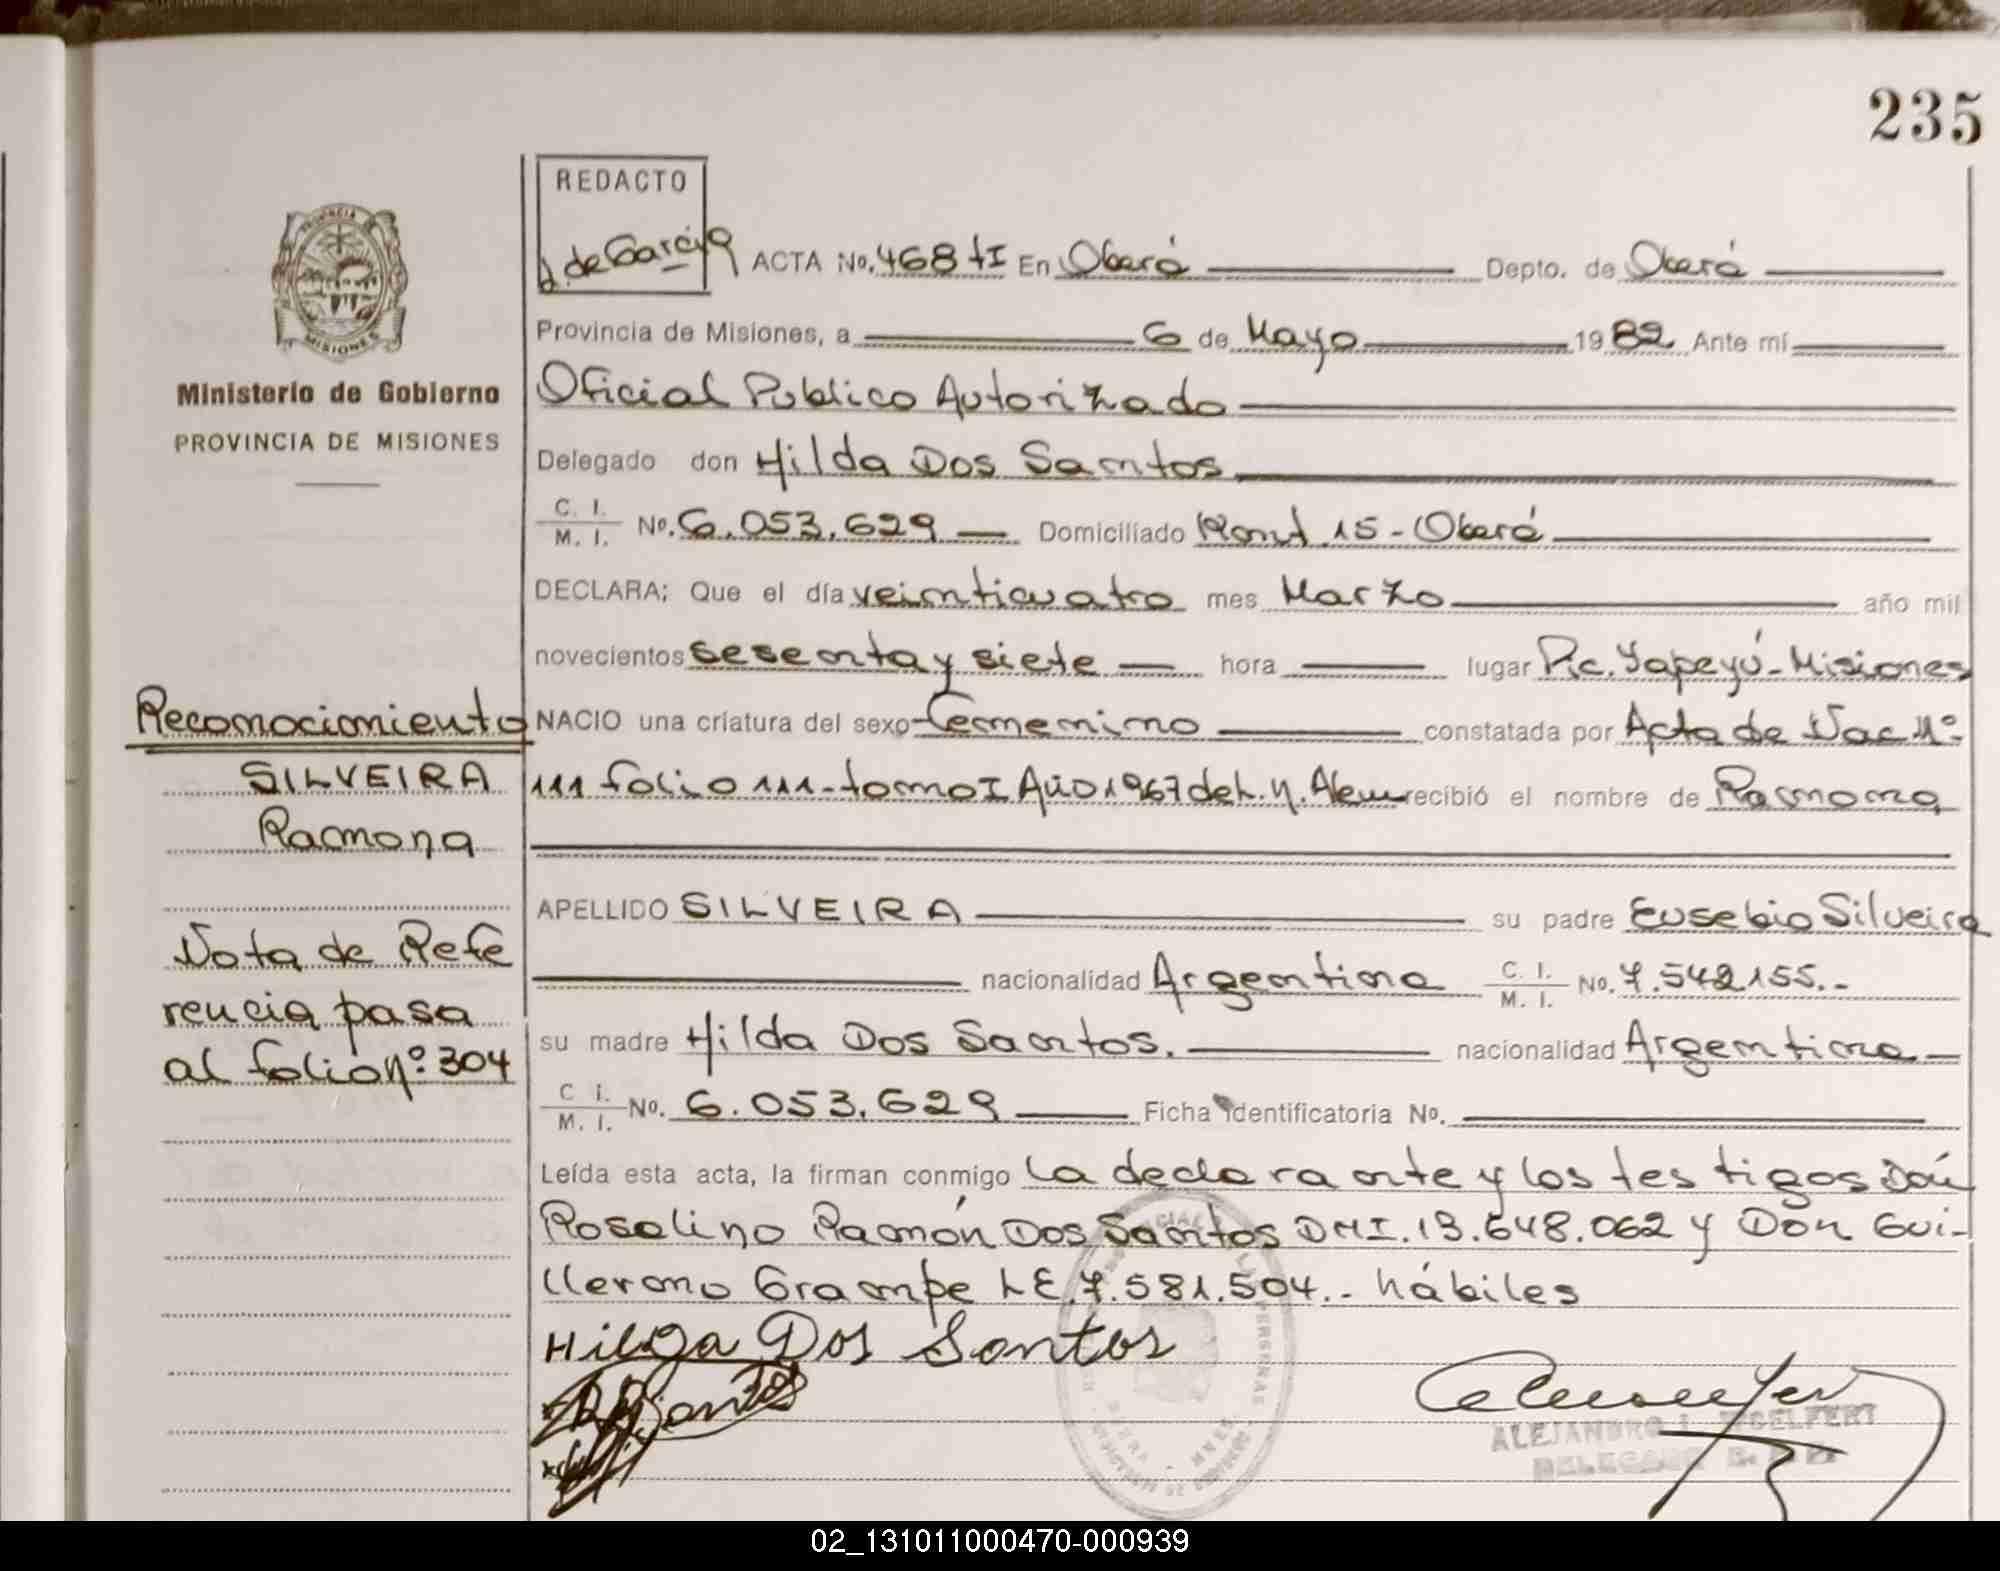 235
REDACTO
J. de García
ACTA No. 468 tI En Oberá Depto. de Oberá
PROVINCIA DE
MISIONES
Provincia de Misiones, a 6 de Mayo 1982 Ante mí
Ministerio de Gobierno
PROVINCIA DE MISIONES
Oficial Publico Autorizado
Delegado don Hilda Dos Santos
C. I.
M. I. No. 6.053.629 Domiciliado 15 - Oberá
DECLARA; Que el día veinticuatro mes Marzo año mil
novecientos sesenta y siete hora lugar Pic. Yapeyú - Misiones
Reconocimiento
SILVEIRA
Ramona
Nota de Refe
rencia pasa
al folio nº 304
NACIO una criatura del sexo femenino constatada por Acta de Nac Nº
111 folio 111 - tomo I Año 1967 de L. N. Alem recibió el nombre de Ramona
APELLIDO SILVEIRA su padre Eusebio Silveira
nacionalidad Argentina C. I.
M. I. No. 7.542155.-
su madre Hilda Dos Santos. nacionalidad Argentina
C I.
M. I. No. 6.053.629 Ficha identificatoria No.
Leída esta acta, la firman conmigo la declarante y los testigos Don
Rosalino Ramón Dos Santos DNI. 13.648.062 y Don Gui-
llermo Grampe LE. 7.581.504.- hábiles
Hilda Dos Santos
ALEJANDRO
DELEGADO
02_131011000470-000939